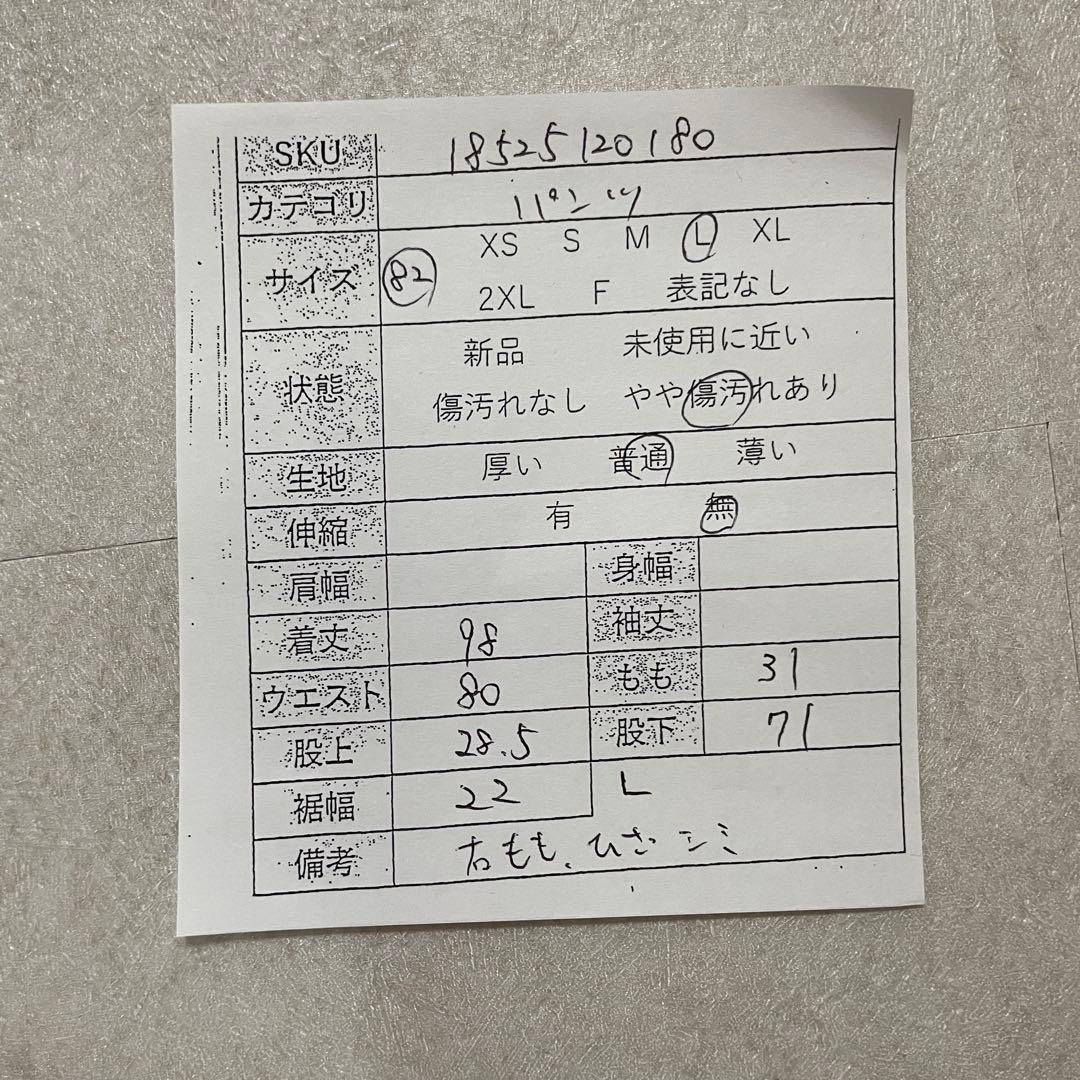 SKU 18525120180
カテゴリ パンツ
サイズ 82 XS S M L XL
2XL F 表記なし
状態 新品 未使用に近い
傷汚れなし やや傷汚れあり
生地 厚い 普通 薄い
伸縮 有 無
肩幅 身幅
着丈 98 袖丈
ウエスト 80 もも 31
股上 28.5 股下 71
裾幅 22 L
備考 右もも、ひざシミ